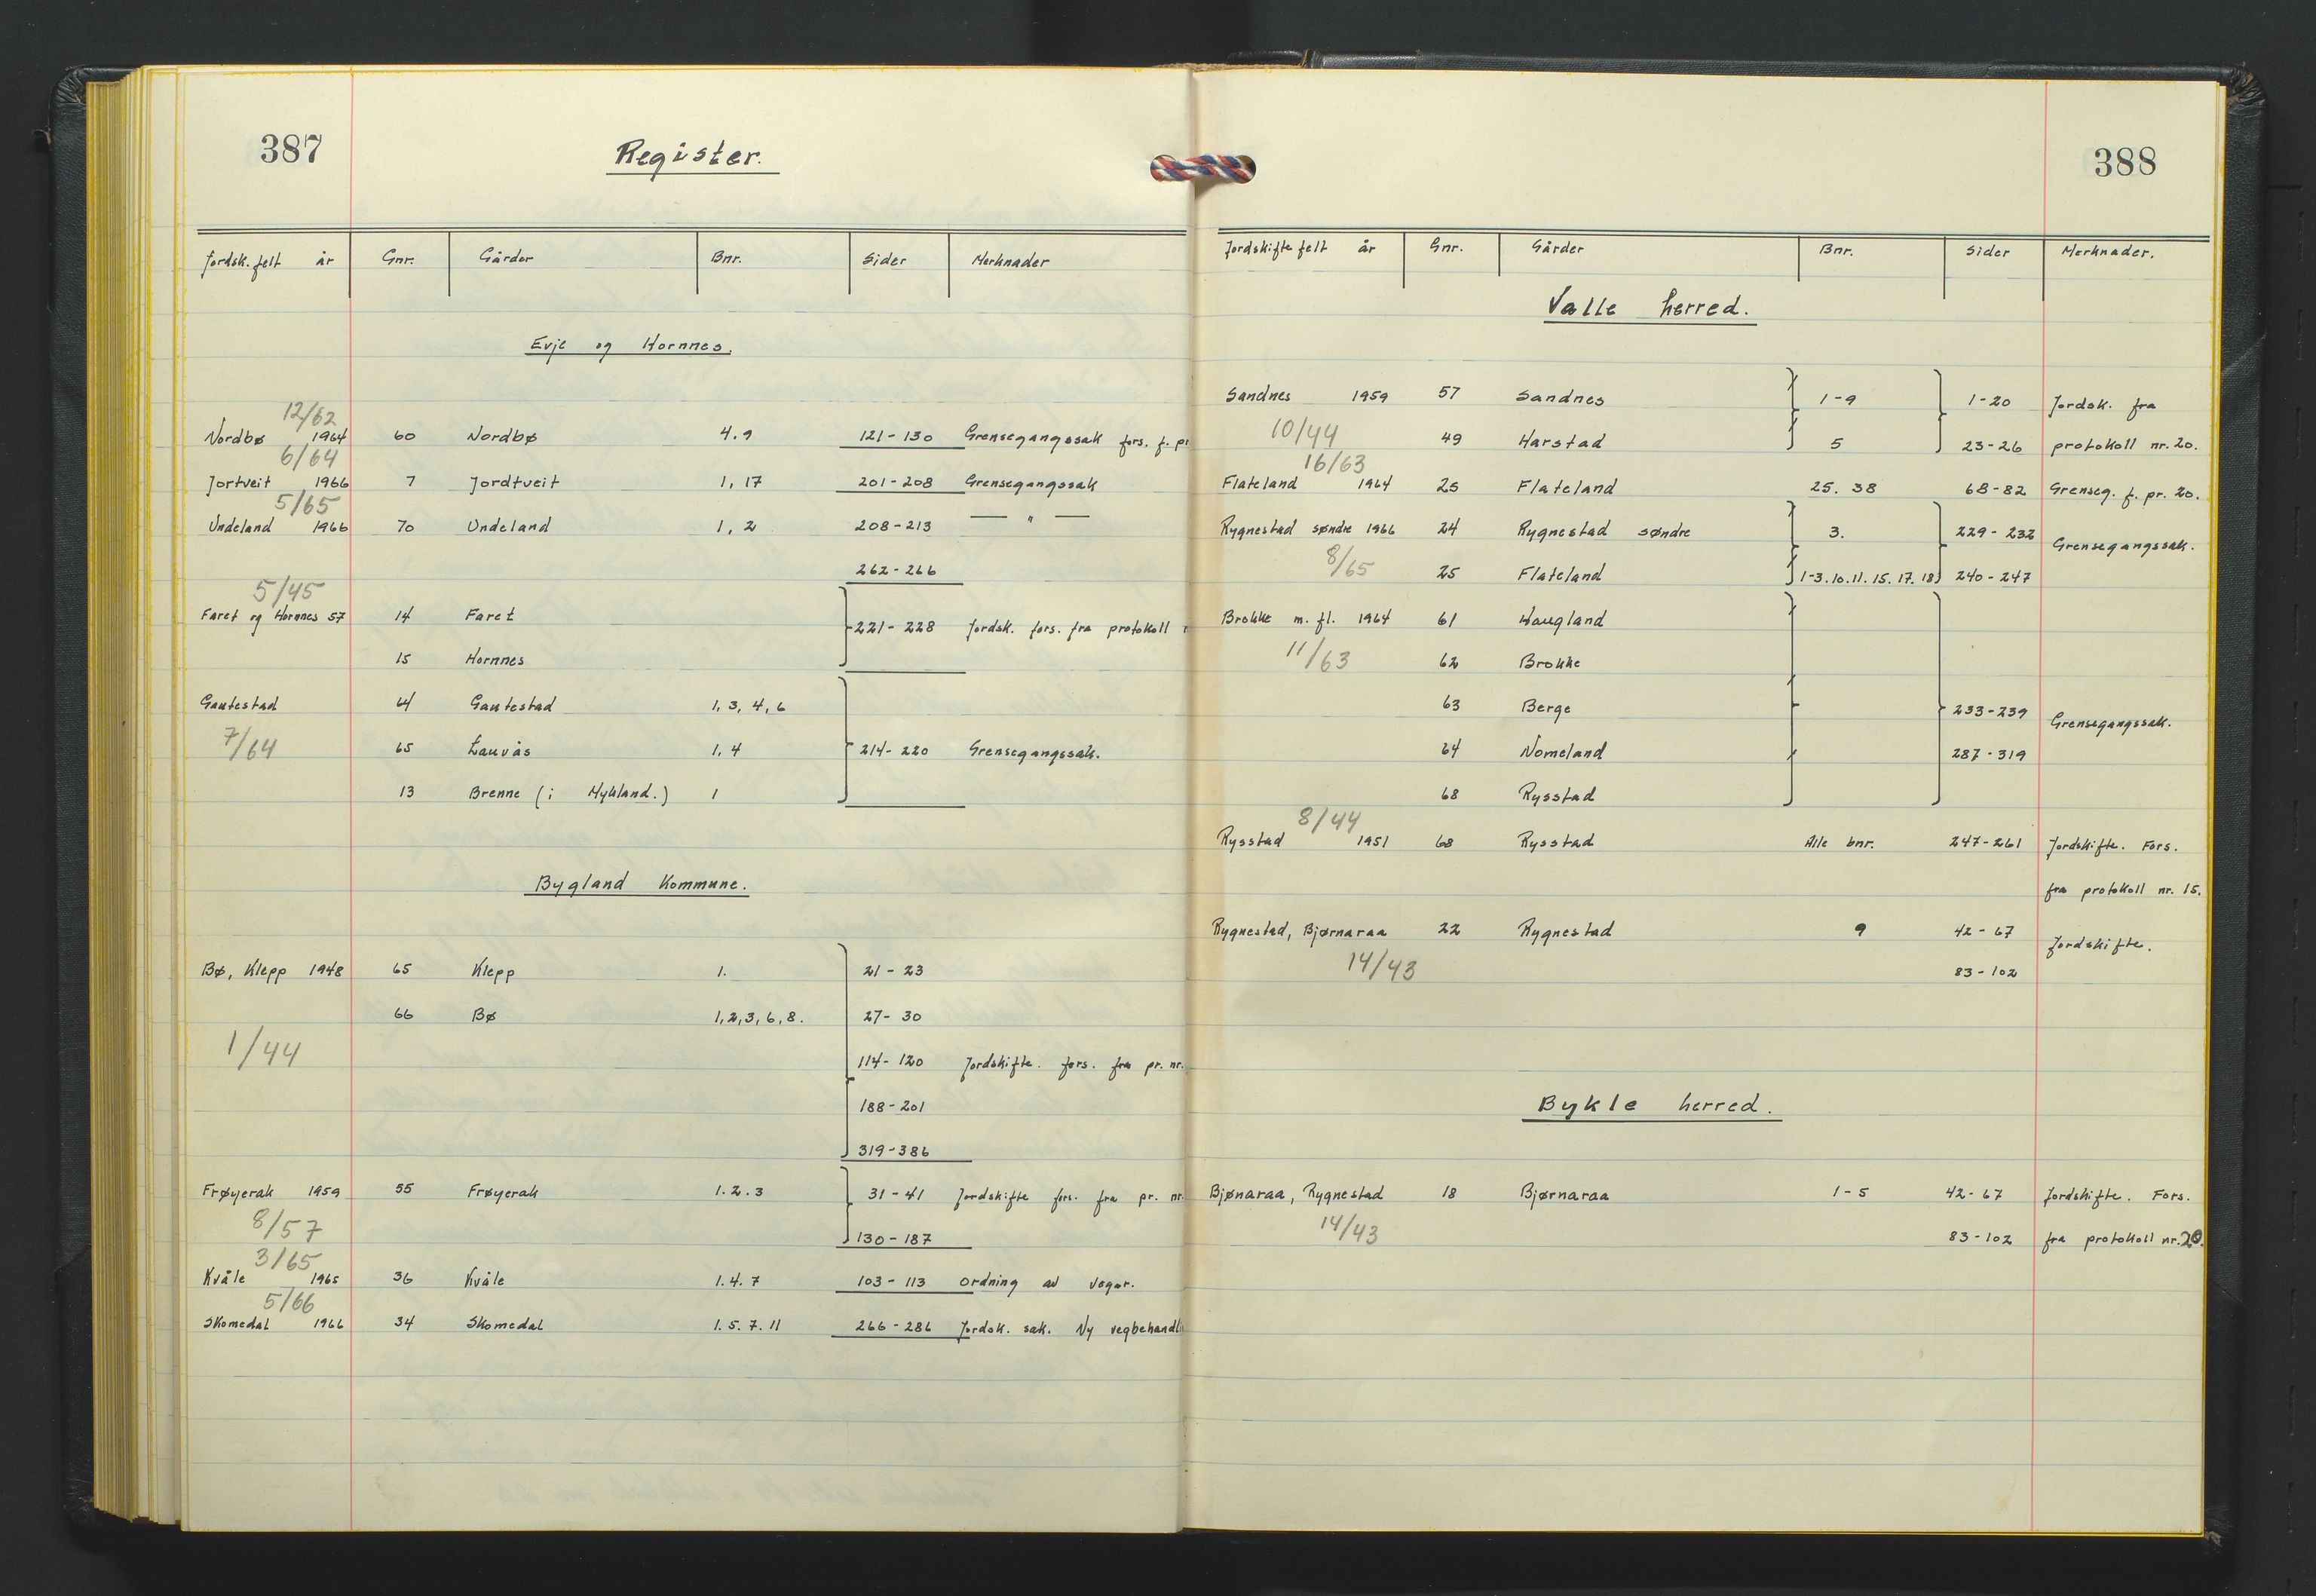 387
Register.
Jordsk.felt år Gnr. Gårder Bnr. Sider Merknader
Evje og Hornnes.
12/62
Nordbø 1964 60 Nordbø 4.9 121-130 Grensegangssak fors. f. pr
6/64
Jortveit 1966 7 Jordtveit 1, 17 201-208 Grensegangssak
5/65
Undeland 1966 70 Undeland 1, 2 208-213 — " —
262-266
5/45
Faret og Hornnes 57 14 Faret 221-228 Jordsk. fors. fra protokoll
15 Hornnes
Gautestad 64 Gautestad 1, 3, 4, 6
7/64 65 Lauvås 1, 4 214-220 Grensegangssak.
13 Brenne (i Mykland.) 1
Bygland Kommune.
Bø, Klepp 1948 65 Klepp 1. 21-23
66 Bø 1,2,3,6,8. 27-30
1/44 114-120 Jordskifte. fors. fra pr. nr.
188-201
319-386
Frøyerak 1959 55 Frøyerak 1.2.3 31-41 Jordskifte fors. fra pr. nr.
8/57 130-187
3/65
Kvåle 1965 36 Kvåle 1.4.7 103-113 Ordning av vegar.
5/66
Skomedal 1966 34 Skomedal 1.5.7.11 266-286 Jordsk. sak. Ny vegbehandl
388
Jordskiftefelt år Gnr. Gårder Bnr. Sider Merknader.
Valle herred.
Sandnes 1959 57 Sandnes 1-9 1-20 Jordsk. fra
10/44 49 Harstad 5 23-26 protokoll nr. 20.
16/63
Flateland 1964 25 Flateland 25. 38 68-82 Grenseg. f. pr. 20.
Rygnestad søndre 1966 24 Rygnestad søndre 3. 229-232 Grensegangssak.
8/65 25 Flateland 1-3.10.11.15.17.18 240-247
Brokke m. fl. 1964 61 Haugland
11/63 62 Brokke
63 Berge 233-239 Grensegangssak.
64 Nomeland 287-319
68 Rysstad
8/44
Rysstad 1951 68 Rysstad Alle bnr. 247-261 Jordskifte. Fors.
fra protokoll nr. 15.
Rygnestad, Bjørnaraa 22 Rygnestad 9 42-67 Jordskifte.
14/43 83-102
Bykle herred.
Bjønaraa, Rygnestad 18 Bjørnaraa 1-5 42-67 Jordskifte. Fors.
14/43 83-102 fra protokoll nr. 20.